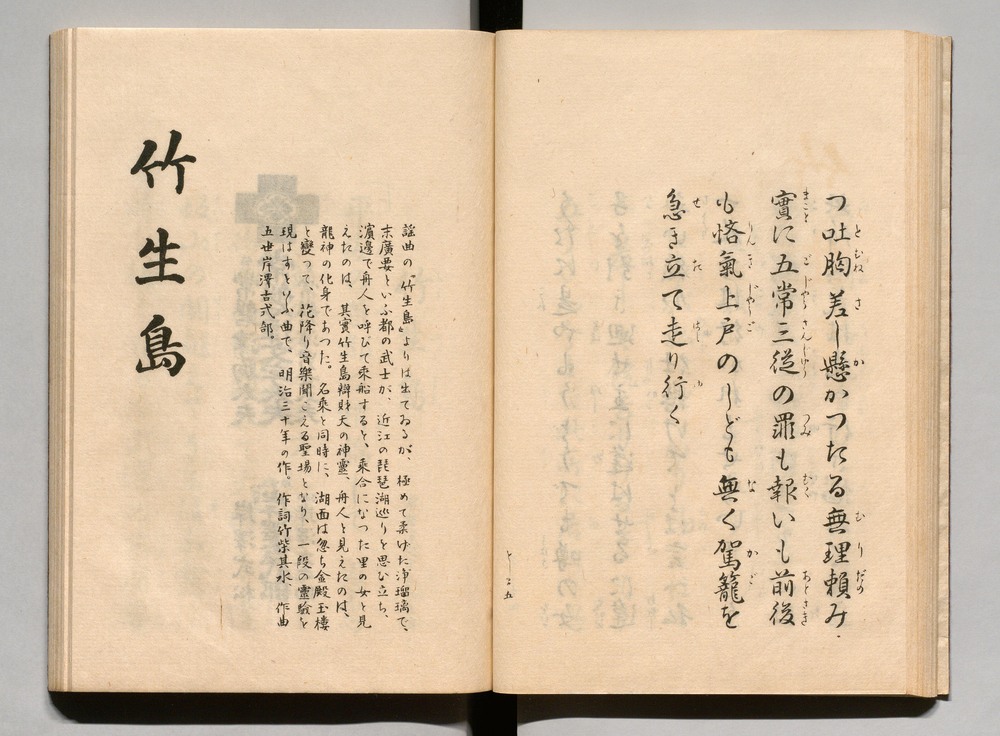 つ吐胸差し懸かつたる無理頼み
實に五常三従の罪も報いも前後
も悋氣上戸のしども無く駕籠を
急き立て走り行く
竹生島
謡曲の「竹生島」よりは出てゐるが、極めて柔げた浄瑠璃で、
末廣要といふ都の武士が、近江の琵琶湖巡りを思ひ立ち、
濱邊で舟人を呼びて乘船すると、乘合になつた里の女と見
えたのは、其實竹生島辯財天の神靈、舟人と見えたのは、
龍神の化身であつた。名乘と同時に、湖面は忽ち金殿玉樓
と變つて、花降り音樂聞こえる聖場となり、一段の靈驗を
現はすといふ曲で、明治三十年の作、作詞竹柴其水、作曲
五世岸澤古式部。